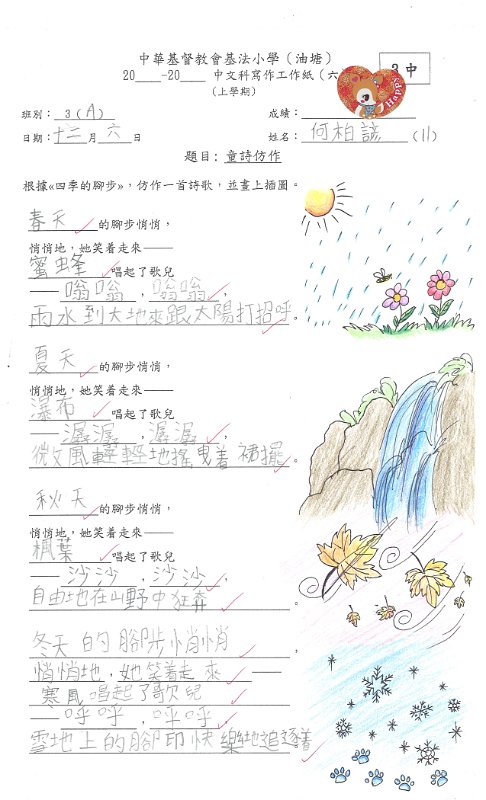 中華基督教會基法小學（油塘）
20____-20____ 中文科寫作工作紙（六
3中
（上學期）
Happy
班別：3(A)
成績：
日期：十二月六日
姓名：何柏諺(11)
題目：童詩仿作
根據«四季的腳步»，仿作一首詩歌，並畫上插圖。
春天的腳步悄悄，
悄悄地，她笑着走來——
蜜蜂唱起了歌兒
——嗡嗡，嗡嗡，
雨水到大地來跟太陽打招呼。
夏天的腳步悄悄，
悄悄地，她笑着走來——
瀑布唱起了歌兒
——潺潺，潺潺，
微風輕輕地搖曳着裙擺。
秋天的腳步悄悄，
悄悄地，她笑着走來——
楓葉唱起了歌兒
——沙沙，沙沙，
自由地在山野中狂奔。
冬天的腳步悄悄，
悄悄地，她笑着走來——
寒風唱起了歌兒
——呼呼，呼呼，
雪地上的腳印快樂地追逐着。